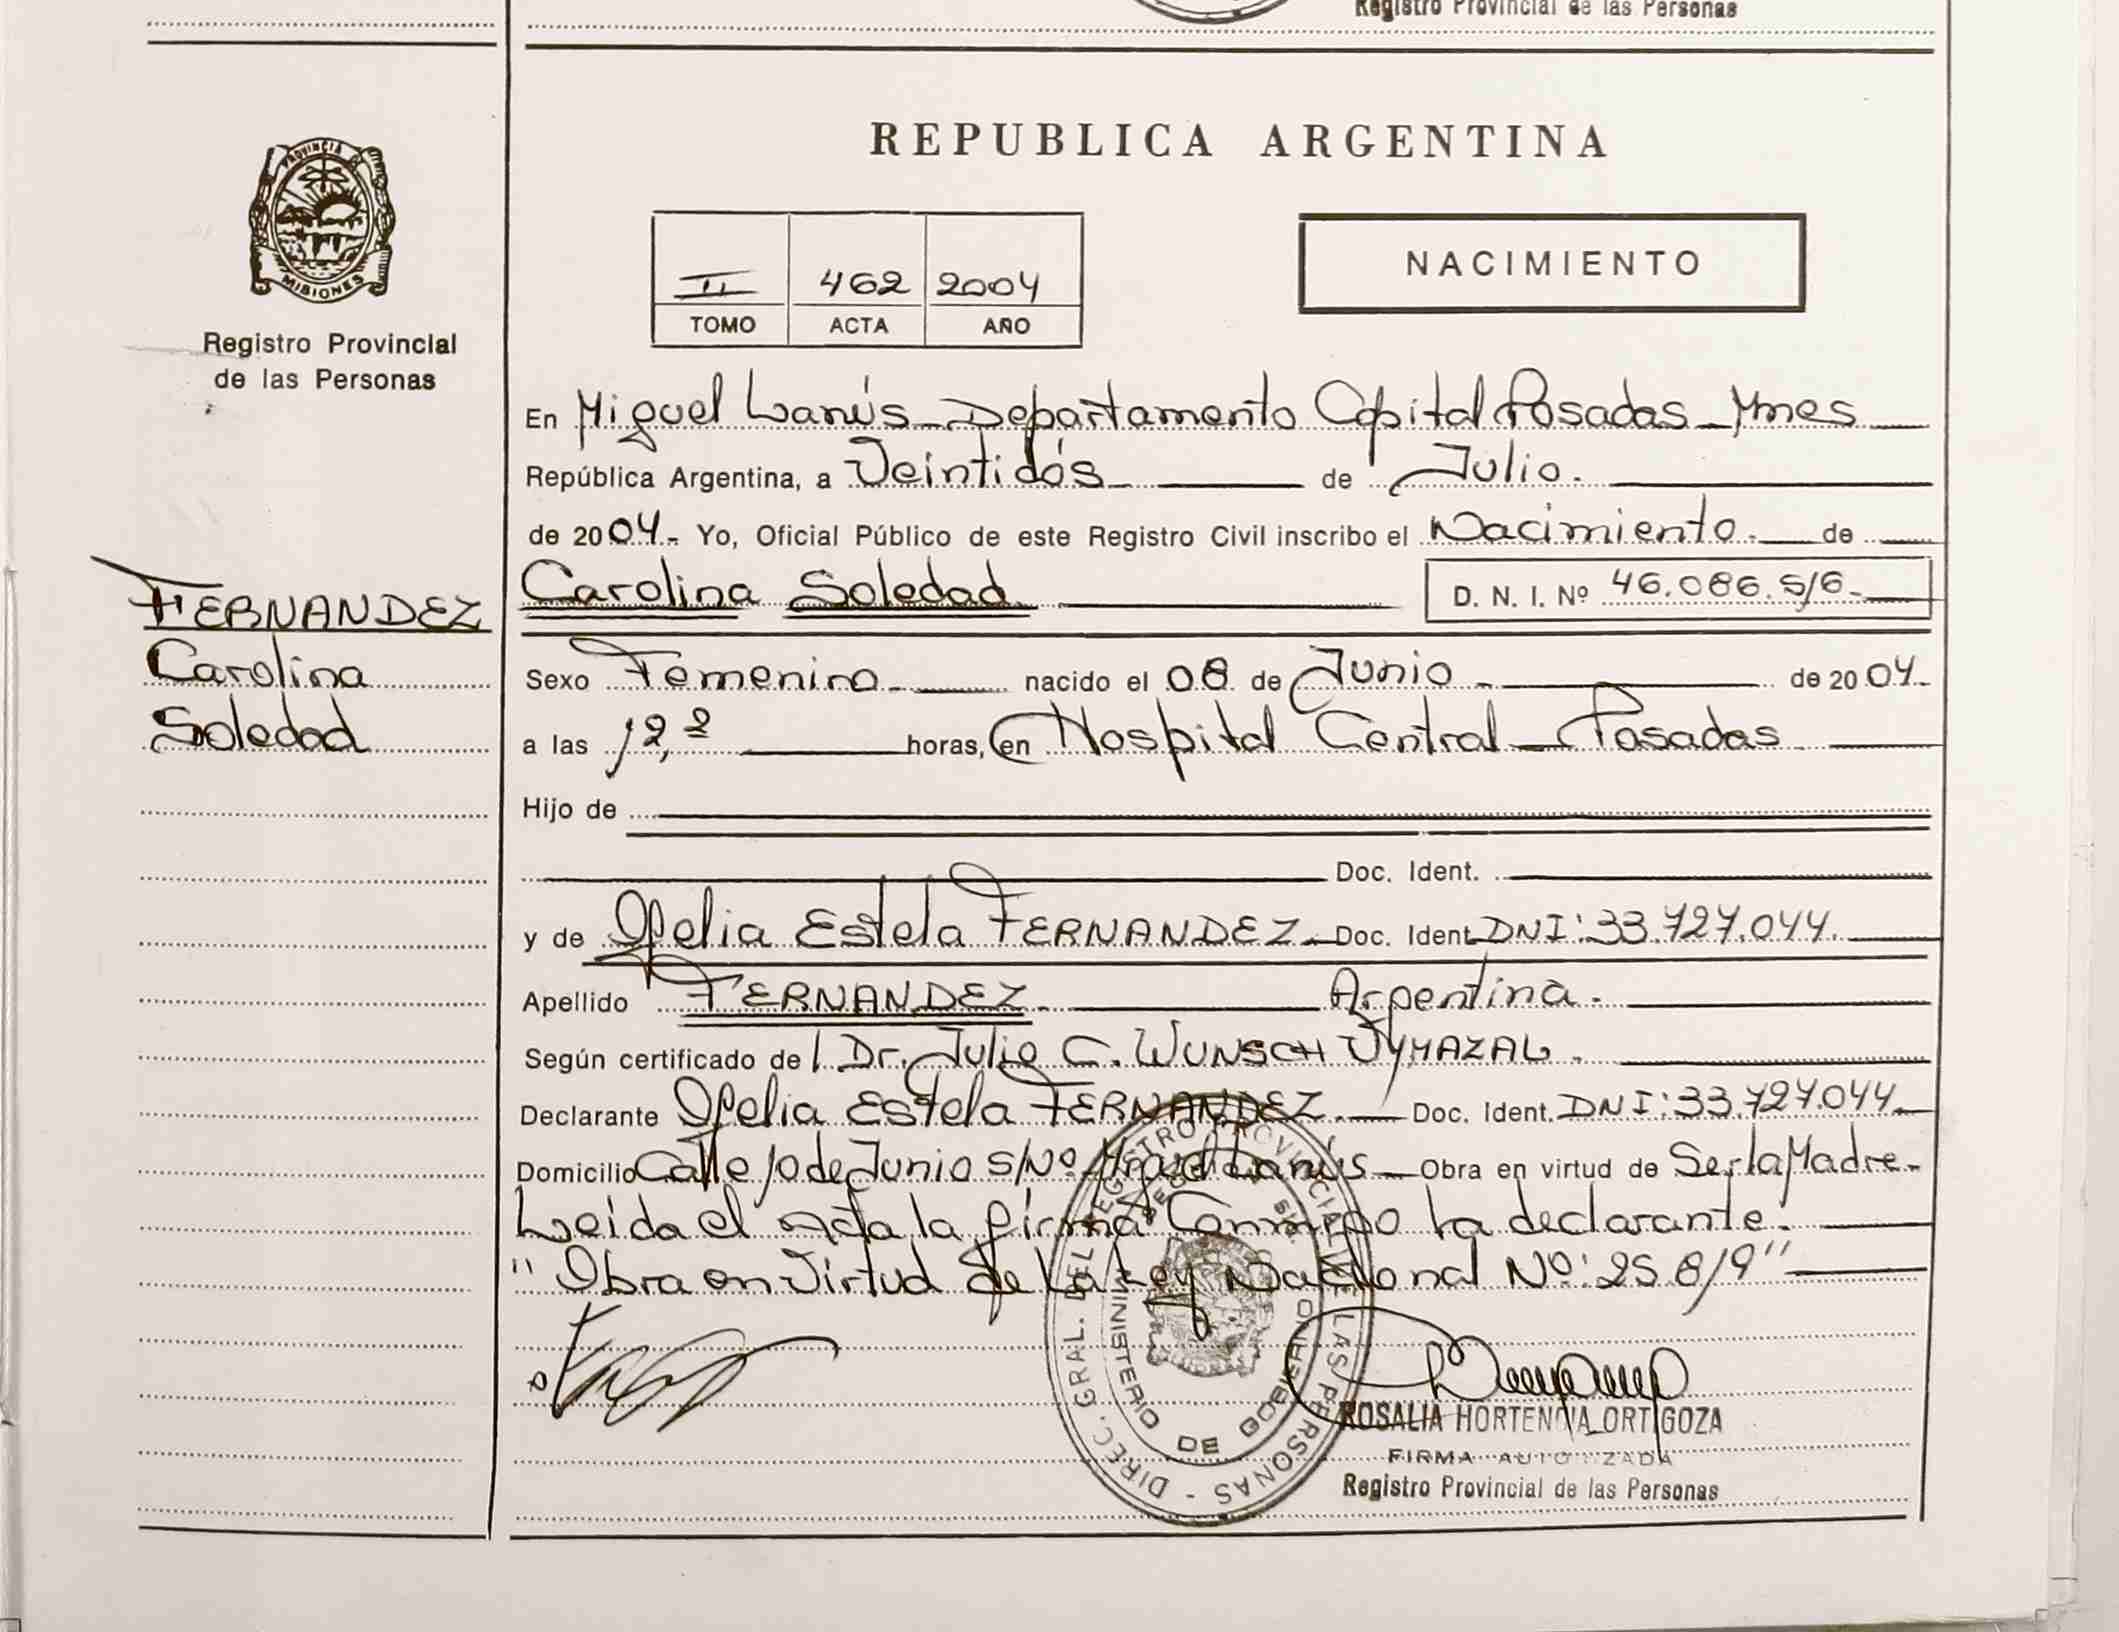 Registro Provincial de las Personas
PROVINCIA
MISIONES
Registro Provincial
de las Personas
FERNANDEZ
Carolina
Soledad
REPUBLICA ARGENTINA
II 462 2004
TOMO ACTA AÑO
NACIMIENTO
En Miguel Lanús - Departamento Capital Posadas - Mnes
República Argentina, a Veintidós de Julio.
de 2004.- Yo, Oficial Público de este Registro Civil inscribo el Nacimiento. de
Carolina Soledad. D. N. I. Nº 46.086.516.-
Sexo Femenino. nacido el 08 de Junio de 2004.
a las 12,º horas, en Hospital Central - Posadas
Hijo de
Doc. Ident.
y de Ofelia Estela FERNANDEZ.- Doc. Ident. DNI: 33.727.044.
Apellido FERNANDEZ. Argentina.
Según certificado de l. Dr. Julio C. WUNSCH VYMAZAL.
Declarante Ofelia Estela FERNANDEZ.- Doc. Ident. DNI: 33.727.044
Domicilio Calle 10 de Junio s/Nº Lanús - Obra en virtud de Ser la Madre.
Leida el Acta la firma Conmigo la declarante.
"Obra en Virtud de la Ley Nacional Nº: 25.819"
DIREC. GRAL. DEL REGISTRO PROVINCIAL DE LAS PERSONAS -
MINISTERIO DE GOBIERNO
ROSALIA HORTENCIA ORTIGOZA
FIRMA AUTORIZADA
Registro Provincial de las Personas